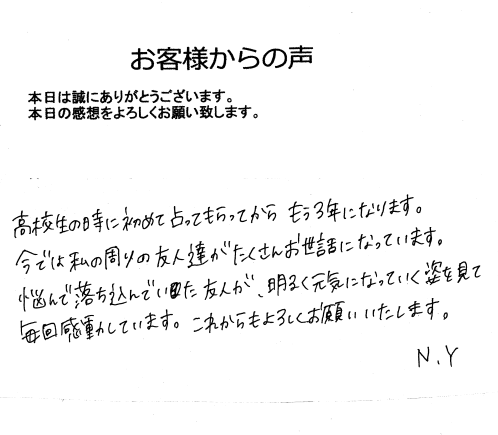 お客様からの声
本日は誠にありがとうございます。
本日の感想をよろしくお願い致します。
高校生の時に初めて占ってもらってから もう3年になります。
今では私の周りの友人達がたくさんお世話になっています。
悩んで落ち込んでいた友人が、明るく元気になっていく姿を見て
毎回感動しています。これからもよろしくお願いいたします。
N.Y